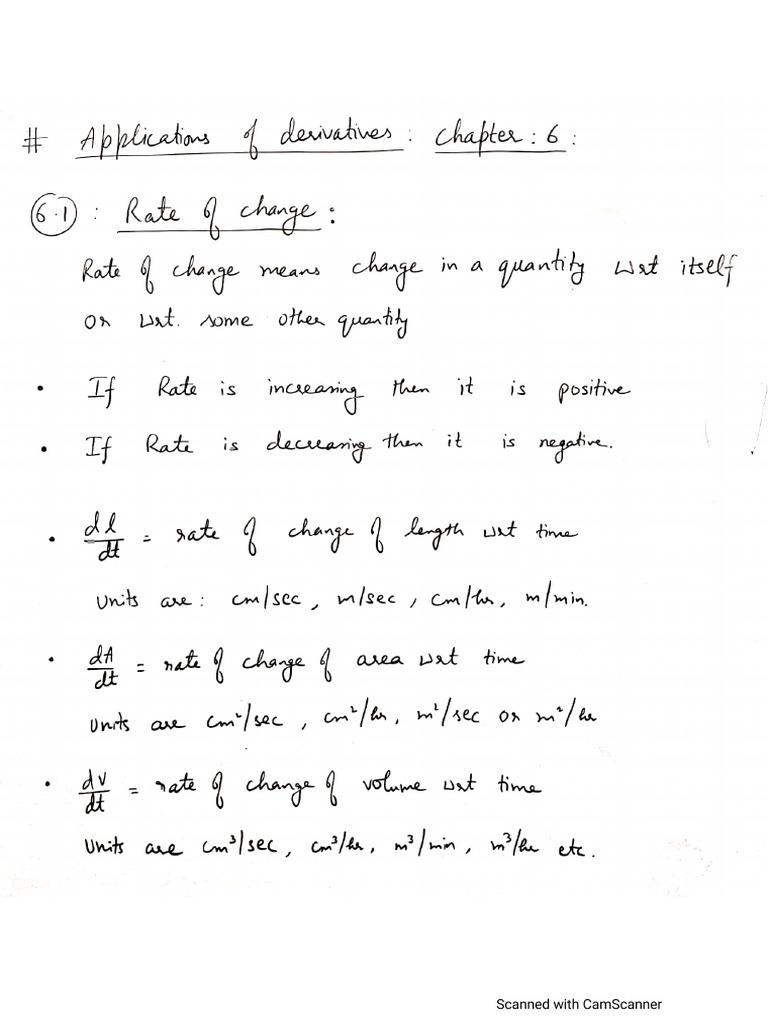 # Applications of derivatives : Chapter : 6 :
6.1 : Rate of change :
Rate of change means change in a quantity wrt itself
or wrt. some other quantity
• If Rate is increasing then it is positive
• If Rate is decreasing then it is negative.
• dl/dt = rate of change of length wrt time
Units are : cm/sec , m/sec , cm/hr, m/min.
• dA/dt = rate of change of area wrt time
Units are cm²/sec , cm²/hr , m²/sec or m²/hr
• dv/dt = rate of change of volume wrt time
Units are cm³/sec , cm³/hr , m³/min , m³/hr etc.
Scanned with CamScanner